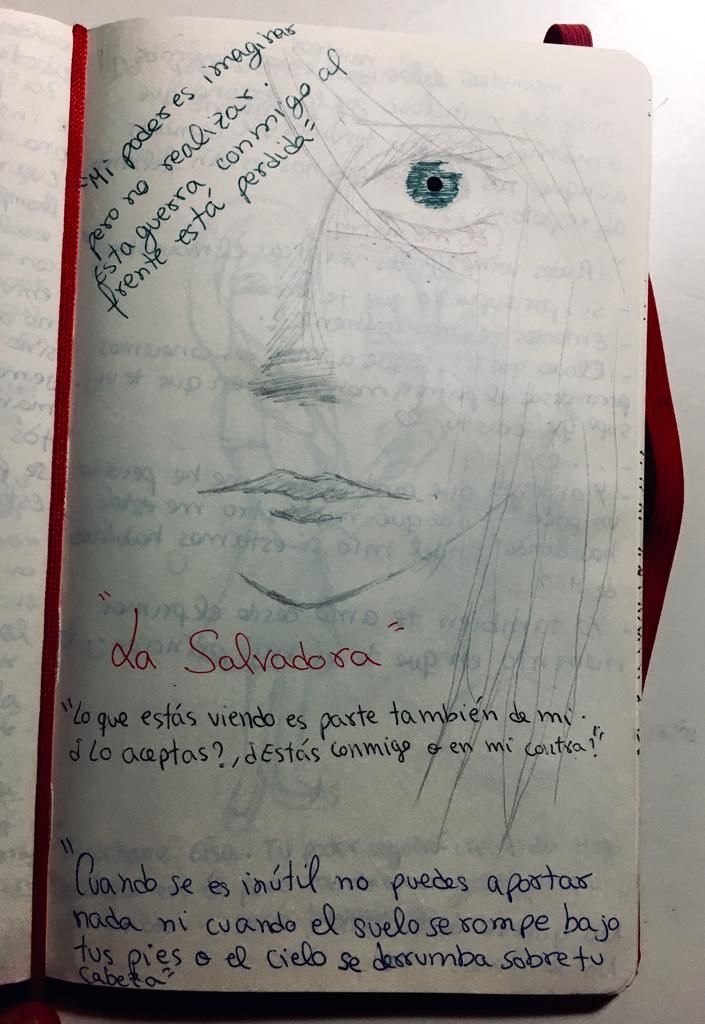 "Mi poder es imaginar
pero no realizar.
Esta guerra conmigo al
frente está perdida"
"La Salvadora"
"Lo que estás viendo es parte también de mi.
¿Lo aceptas?, ¿Estás conmigo o en mi contra?"
"Cuando se es inútil no puedes aportar
nada ni cuando el suelo se rompe bajo
tus pies o el cielo se derrumba sobre tu
cabeza"